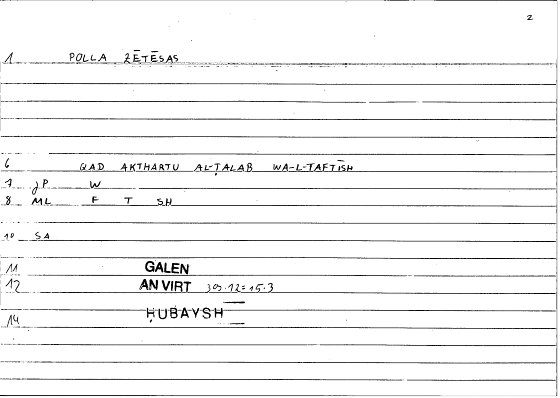 2
1 POLLA ZĒTĒSAS
6 QAD AKTHARTU AL-ṬALAB WA-L-TAFTĪSH
7 JP W
8 ML F T SH
10 SA
11 GALEN
12 AN VIRT 309.12=15.3
14 ḤUBAYSH